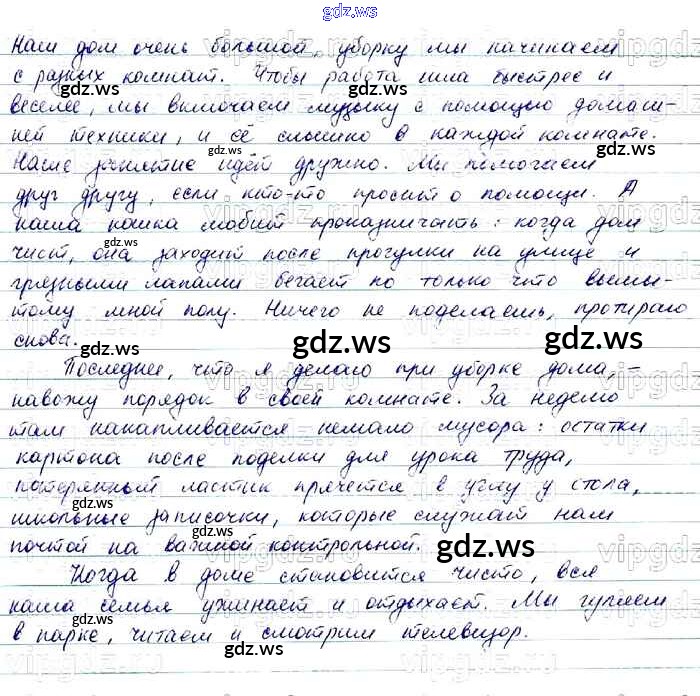 gdz.ws
Наш дом очень большой, уборку мы начинаем
с разных комнат. Чтобы работа шла быстрее и
веселее, мы включаем музыку с помощью домаш-
ней техники, и её слышно в каждой комнате.
Наше занятие идёт дружно. Мы помогаем
друг другу, если кто-то просит о помощи. А
наша кошка любит проказничать: когда дом
чист, она заходит после прогулки на улице и
грязными лапами бегает по только что вымы-
тому мной полу. Ничего не поделаешь, протираю
снова.
Последнее, что я делаю при уборке дома, -
навожу порядок в своей комнате. За неделю
там накапливается немало мусора: остатки
картона после поделки для урока труда,
потерянный ластик прячется в углу у стола,
школьные записочки, которые служат нам
почтой на важной контрольной.
Когда в доме становится чисто, вся
наша семья ужинает и отдыхает. Мы гуляем
в парке, читаем и смотрим телевизор.
gdz.ws